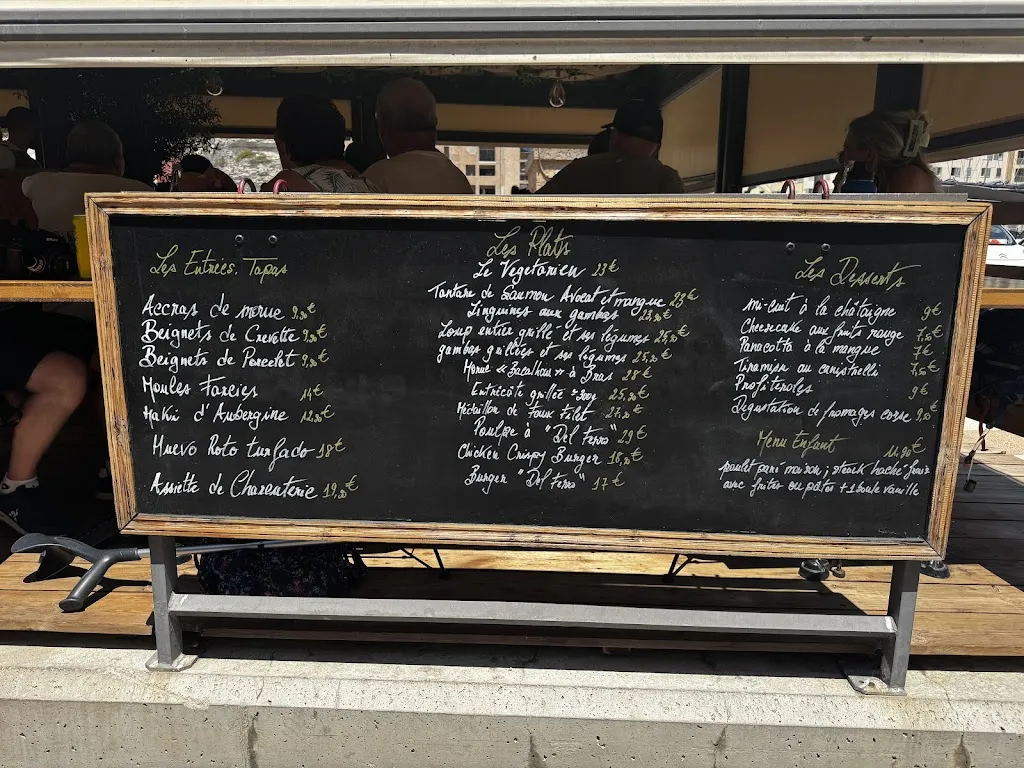 Les Entrées. Tapas
Accras de morue 9,50€
Beignets de Crevette 9,50€
Beignets de Porcelet 9,50€
Moules Farcies 14€
Maki d'Aubergine 12,50€
Huevo Roto trufado 18€
Assiette de Charcuterie 19,50€
Les Plats
Le Vegetarien 23€
Tartare de Saumon Avocat et mangue 23€
Linguines aux gambas 23,50€
Loup entier grillé et ses légumes 25,50€
gambas grillées et ses légumes 25,50€
Morue "Bacalhau" à Bras 28€
Entrecôte grillée 300g 25,50€
Médaillon de Faux Filet 27,50€
Poulpe à "Del Ferro" 29€
Chicken Crispy Burger 18,50€
Burger "Del Ferro" 17€
Les Desserts
mi-cuit à la châtaigne 9€
Cheesecake aux fruits rouge 7,50€
Panacotta à la mangue 7€
Tiramisu au canistrelli 7,50€
Profiteroles 9€
Degustation de fromages corse 9,50€
Menu Enfant 11.90€
poulet pané maison ; steack haché frais
avec frites ou pâtes + 1 boule vanille